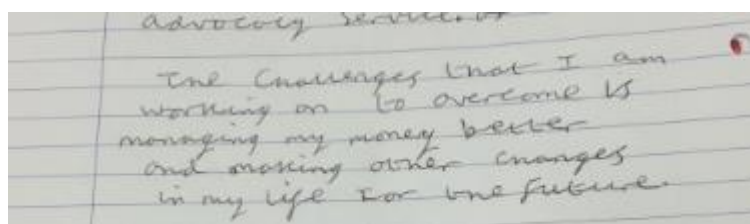 advocacy service.
The Challenges that I am
working on to overcome is
managing my money better
and making other changes
in my life for the future.